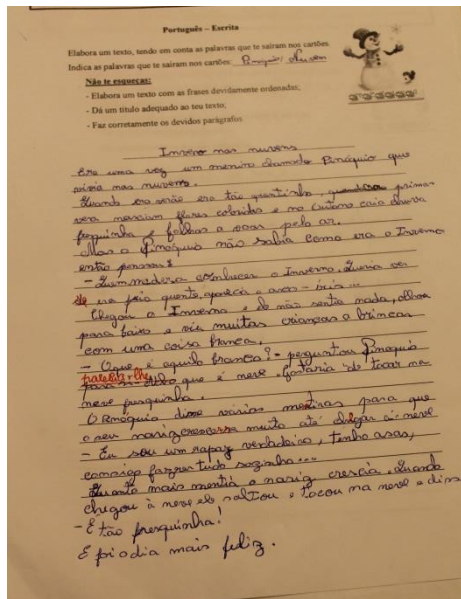 Português – Escrita
Elabora um texto, tendo em conta as palavras que te saíram nos cartões.
Indica as palavras que te saíram nos cartões: Pinóquio/ Nuvem
Não te esqueças:
- Elabora um texto com as frases devidamente ordenadas;
- Dá um título adequado ao teu texto;
- Faz corretamente os devidos parágrafos
Inverno nas nuvens
Era uma vez um menino chamado Pinóquio que
vivia nas nuvens.
Quando era verão era tão quentinho, quando prima-
vera nasciam flores coloridas e no Outono caia chuva
fresquinha e folhas a voar pelo ar.
Mas o Pinóquio não sabia como era o Inverno
então pensou:
- Quem me dera conhecer o Inverno. Queria ver
se frio quente, aparecia o arco-íris...
Chegou o Inverno e ele não sentia nada, olhou
para baixo e viu muitas crianças a brincar
com uma coisa branca.
- O que é aquilo branco? - perguntou Pinóquio
parece-lhe que é neve. Gostaria de tocar na
neve fresquinha.
O Pinóquio disse várias mentiras para que
o seu nariz crescesse muito até chegar à neve
- Eu sou um rapaz verdadeiro, tenho asas,
consigo fazer tudo sozinho...
Quanto mais mentia o nariz crescia. Quando
chegou à neve ele saltou e tocou na neve e disse
- É tão fresquinha!
E foi o dia mais feliz.